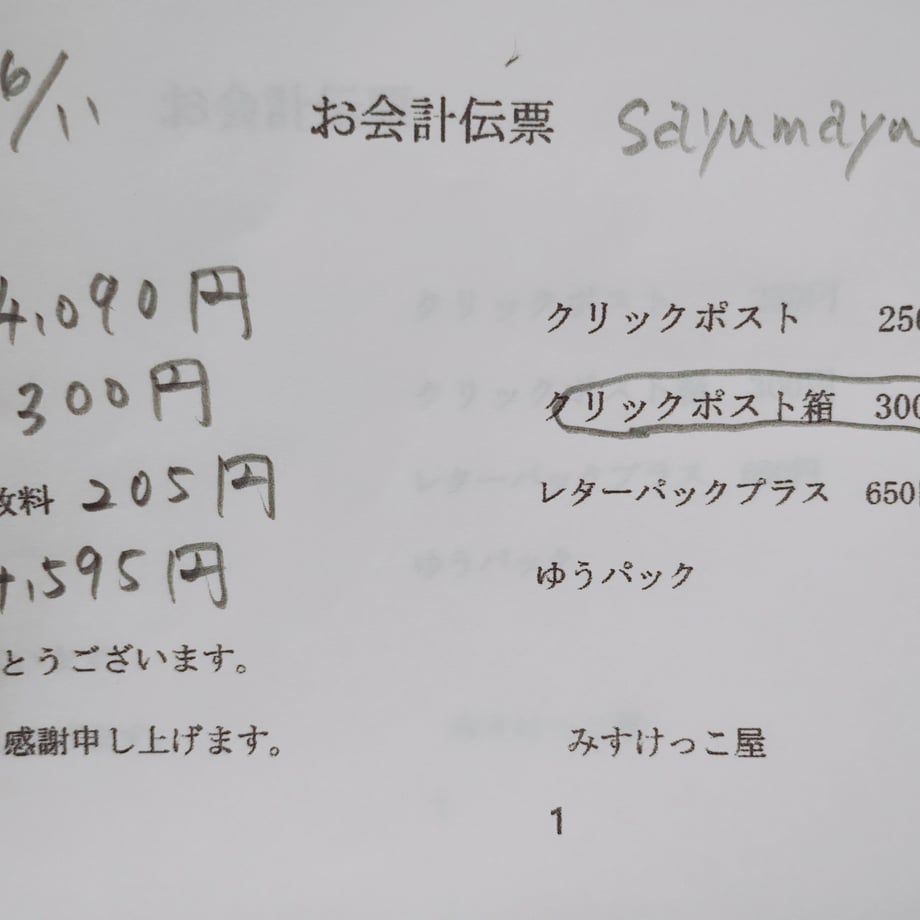 6/11 お会計伝票 sayumayu
4,090円
クリックポスト 250
300円
クリックポスト箱 300
料 205円
レターパックプラス 650
4,595円
ゆうパック
とうございます。
感謝申し上げます。
みすけっこ屋
1